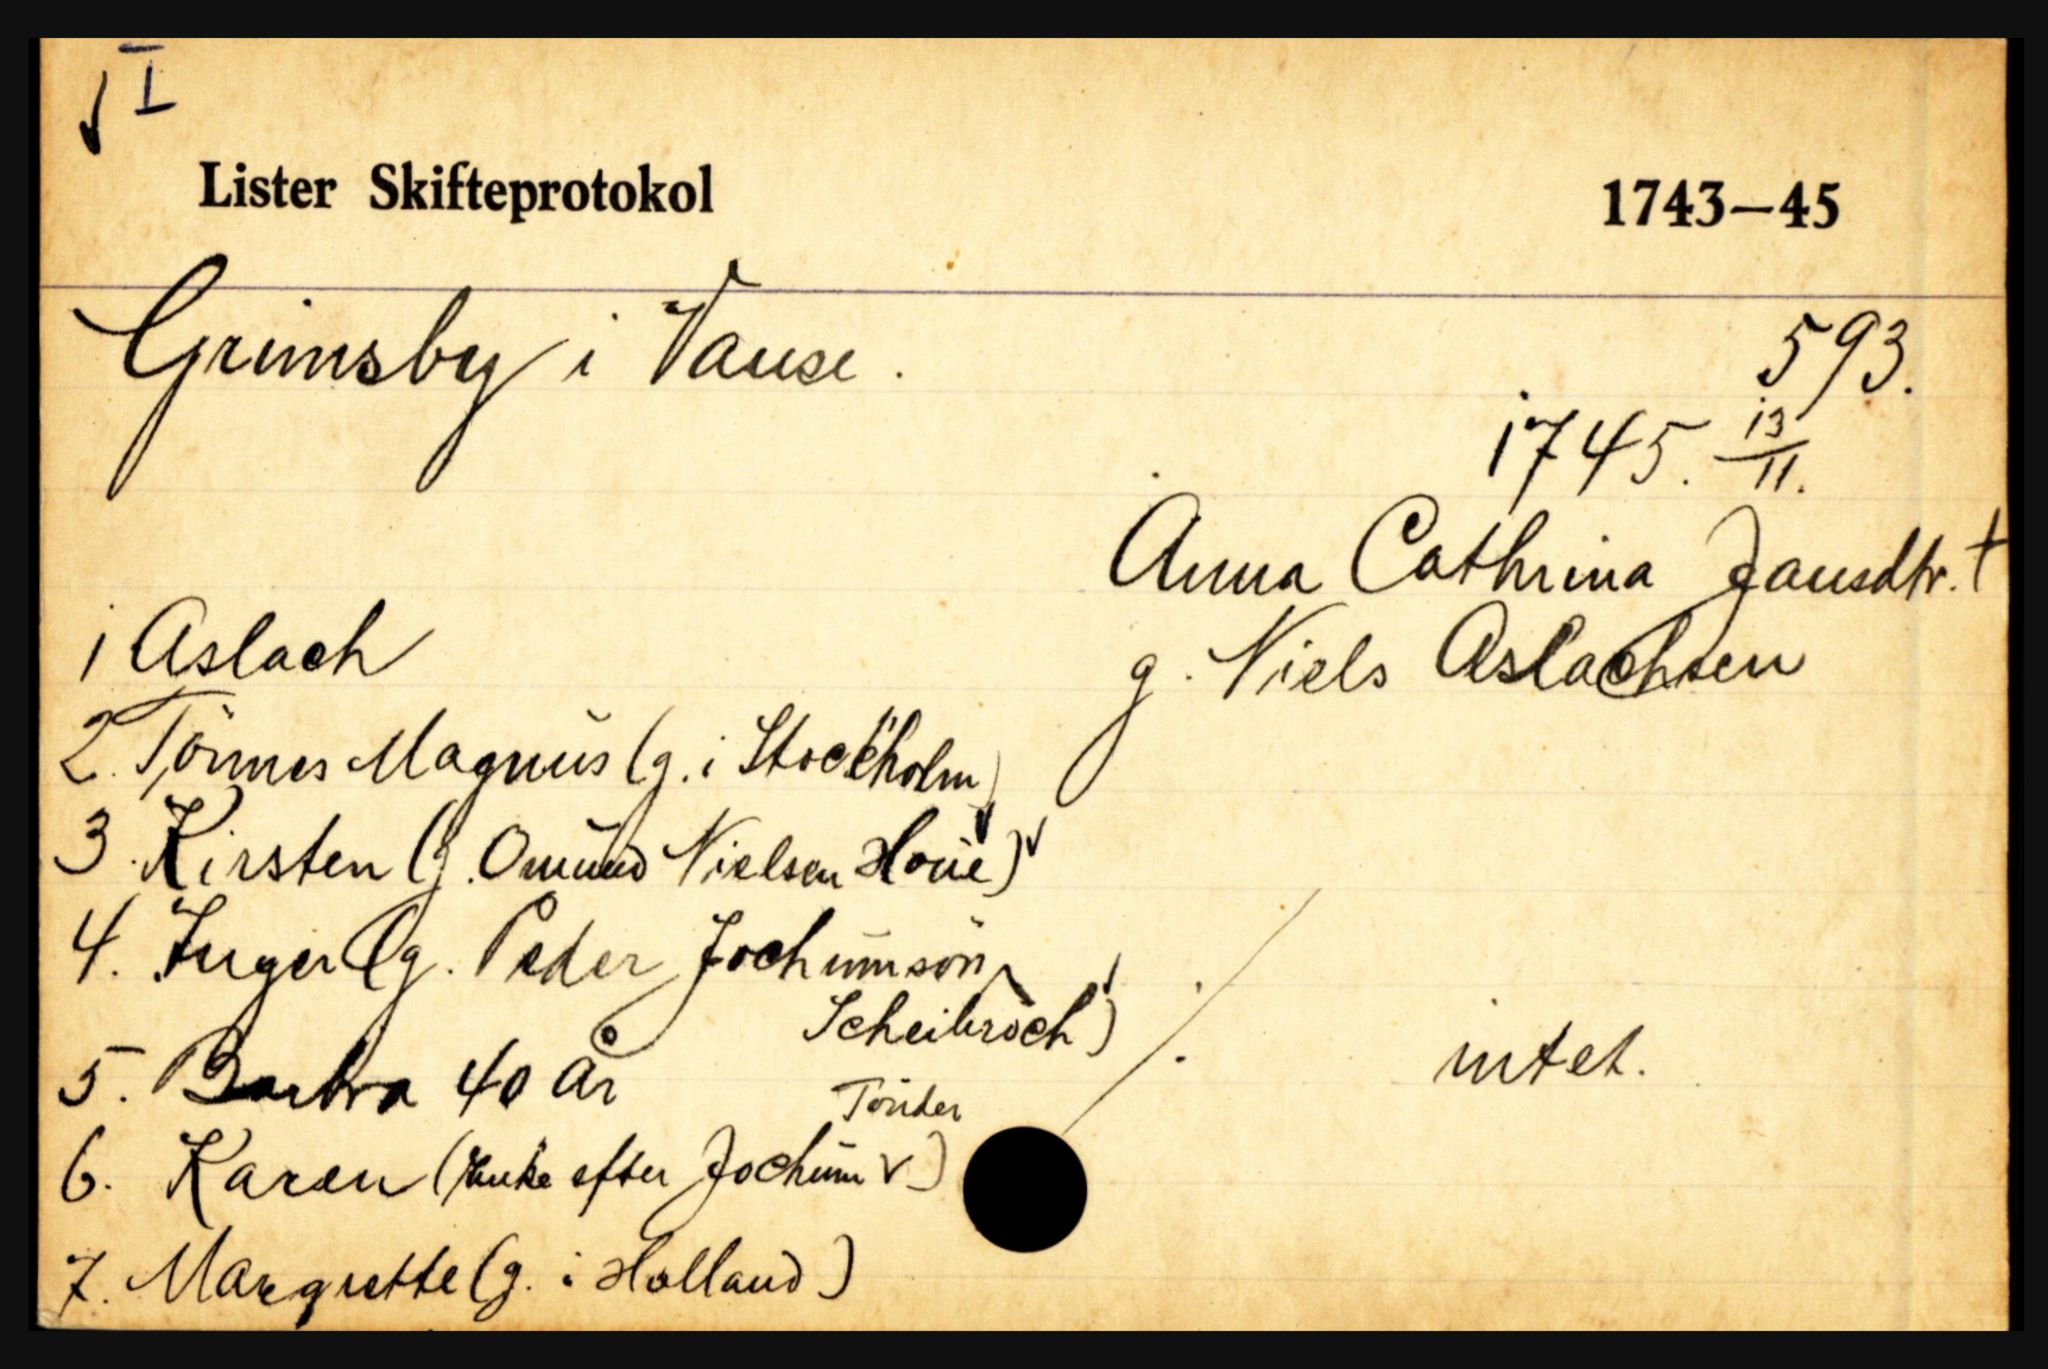 I
Lister Skifteprotokol 1743–45
Grimsby i Vanse.
593.
1745. 13/11.
Anna Cathrina Jansdtr. †
g. Niels Aslachsen
1 Aslach
2. Tönnes Magnus (g. i Stockholm)
3. Kirsten (g. Omund Nielsen Houe)
4. Inger (g. Peder Jochumsön
Scheibroch)
5. Barbra 40 år
Tönder
6. Karen (Enke efter Jochum v)
7. Margrette (g. i Holland)
intet.